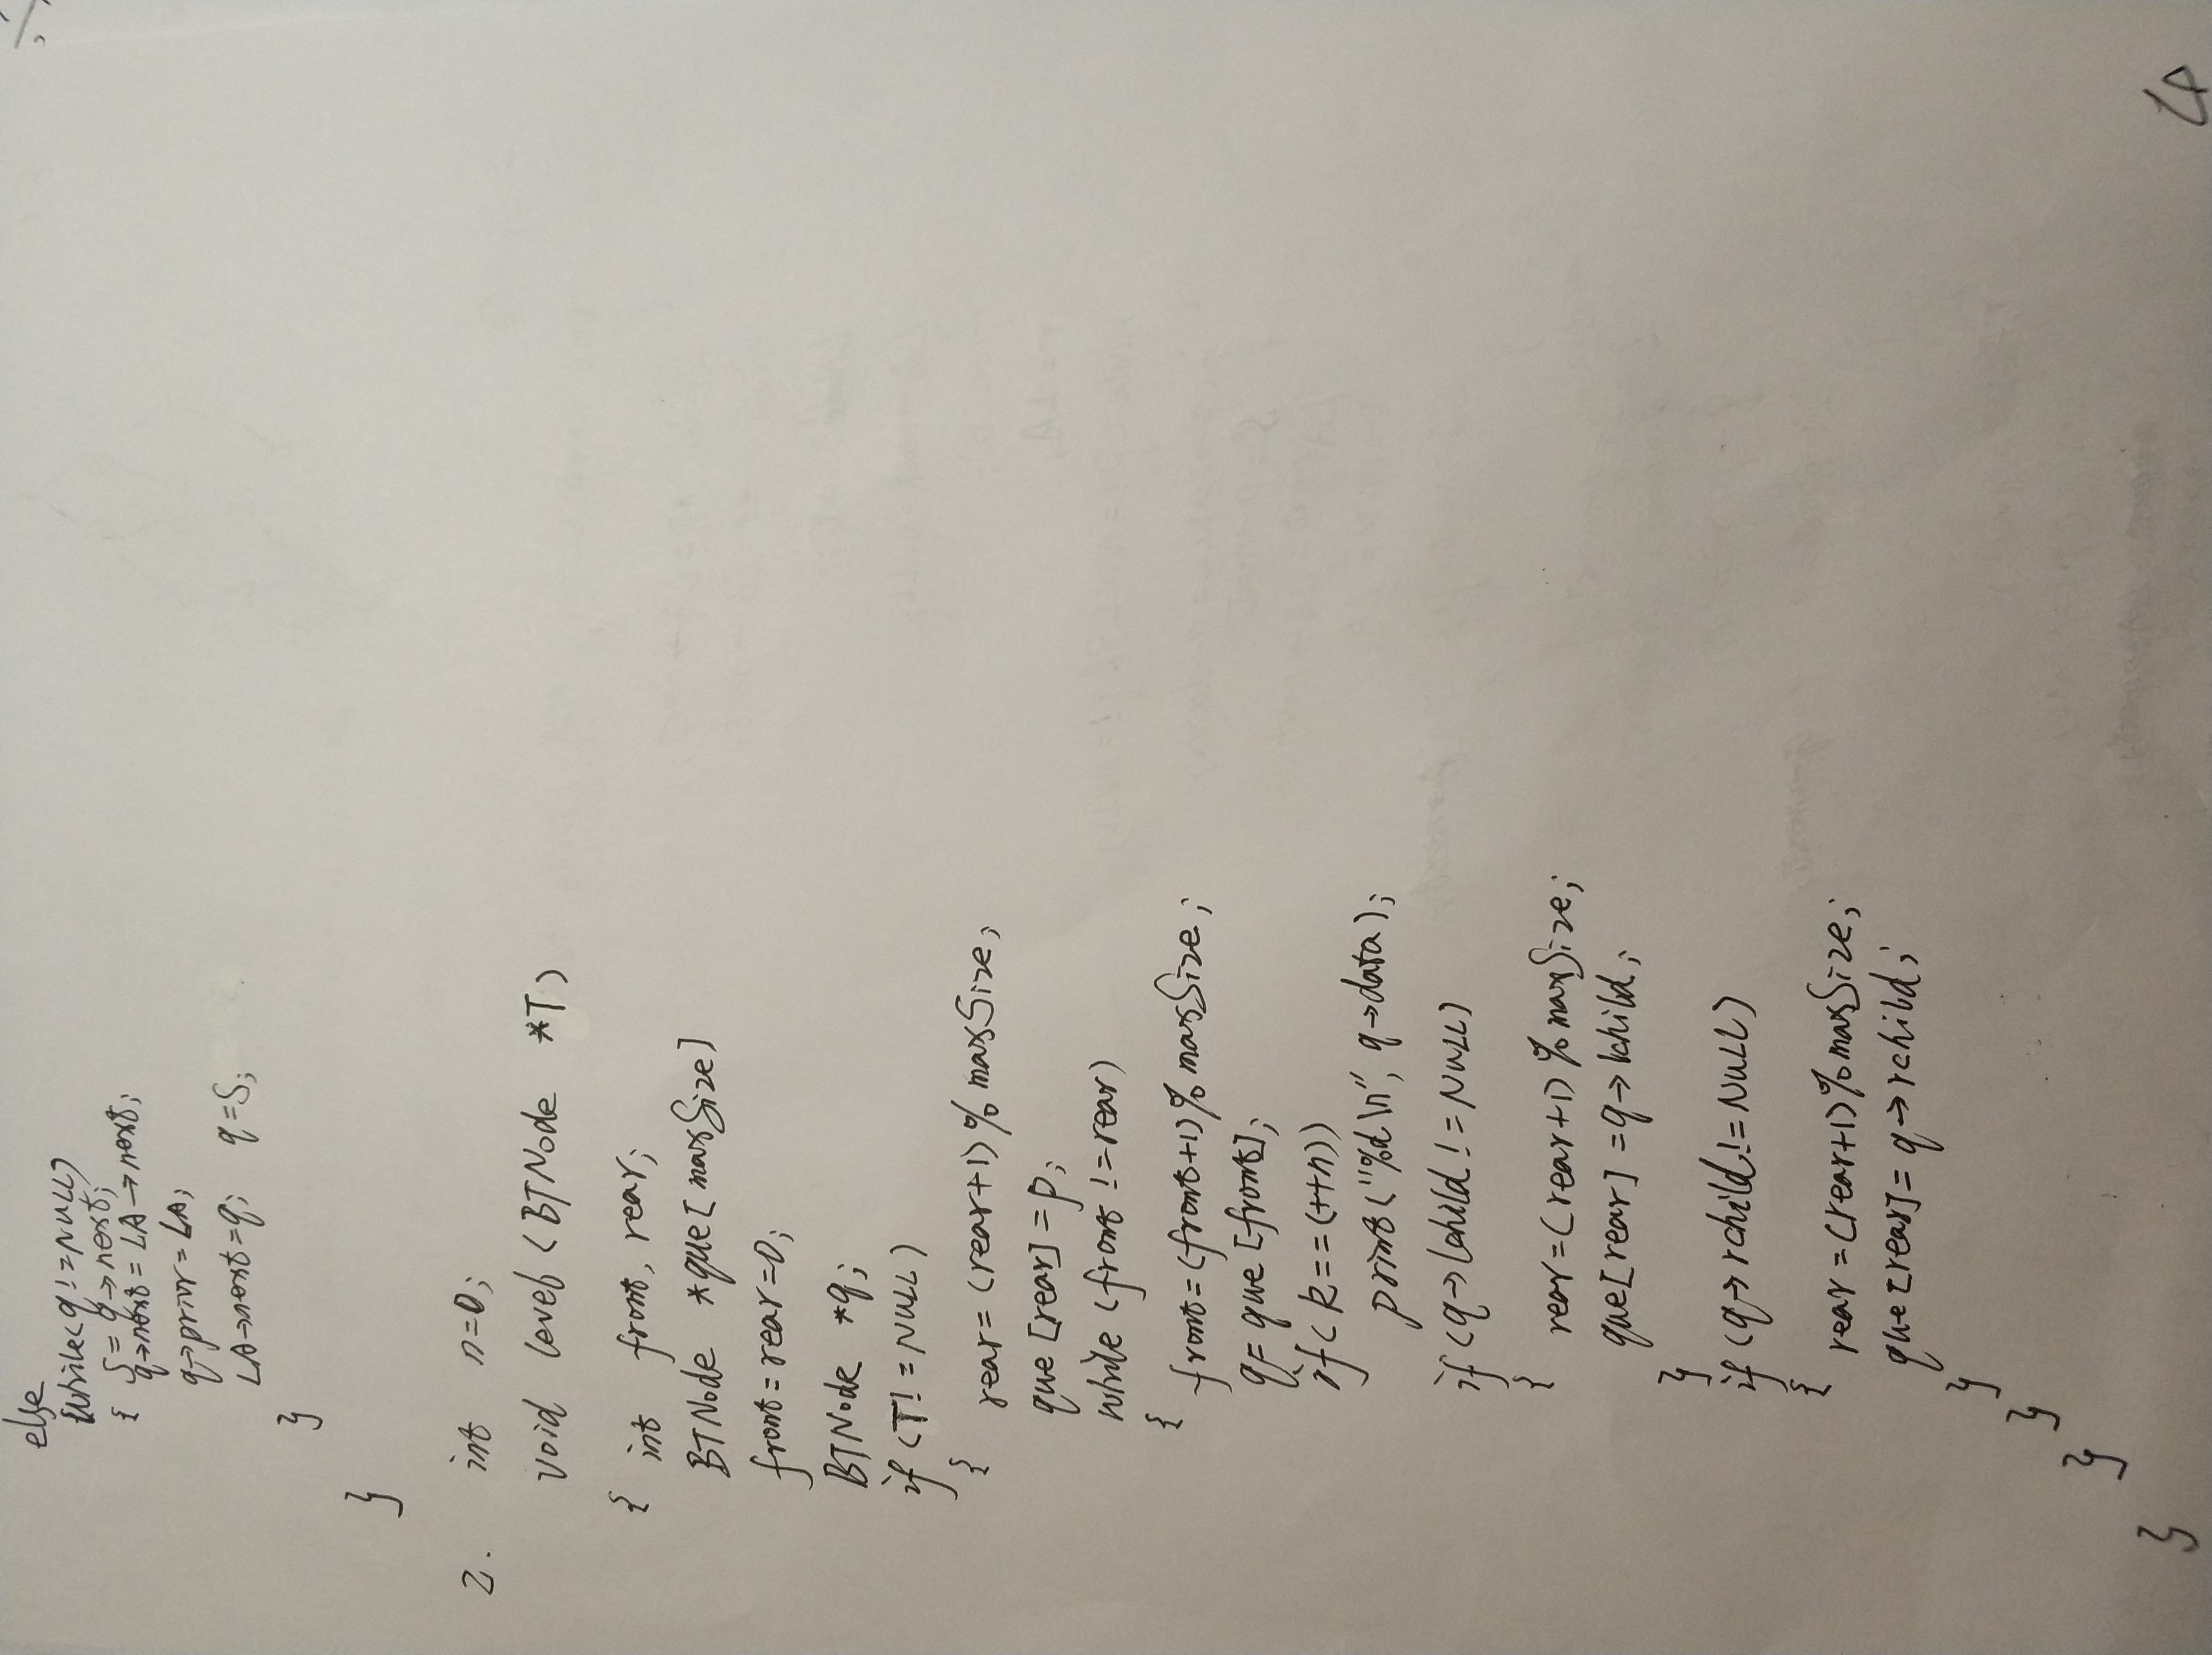 else
while(q!=NULL)
{ S=q→next;
q→next=LA→next;
q→prior=LA;
LA→next=q; q=S;
}
}
2. int n=0;
void level(BTNode *T)
{ int front, rear;
BTNode *que[maxSize]
front=rear=0;
BTNode *q;
if(T!=NULL)
{ rear=(rear+1)%maxSize;
que[rear]=p;
while(front!=rear)
{ front=(front+1)%maxSize;
q=que[front];
if(k==(++n))
print("%d\n", q→data);
if(q→lchild!=NULL)
{ rear=(rear+1)%maxSize;
que[rear]=q→lchild;
}
if(q→rchild!=NULL)
{ rear=(rear+1)%maxSize;
que[rear]=q→rchild;
}
}
}
}